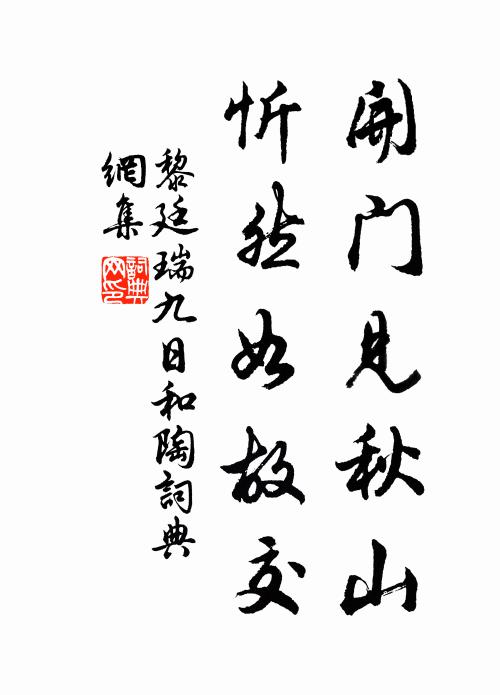 開門見秋山
忻然如故交
黎廷瑞九日和陶詞典
網集
詞典网印